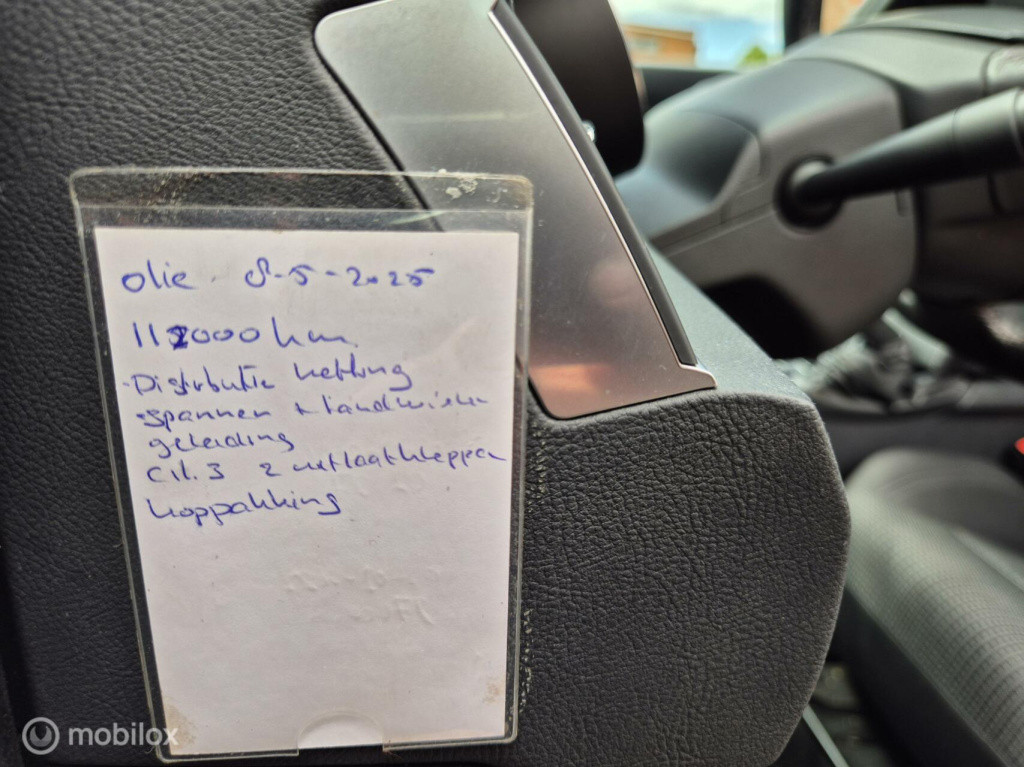 olie. 8-5-2025
112000 km
-Distributie ketting
-spannen + tandwielen
geleiding
Cil. 3 2 uitlaatkleppen
koppakking
mobilox